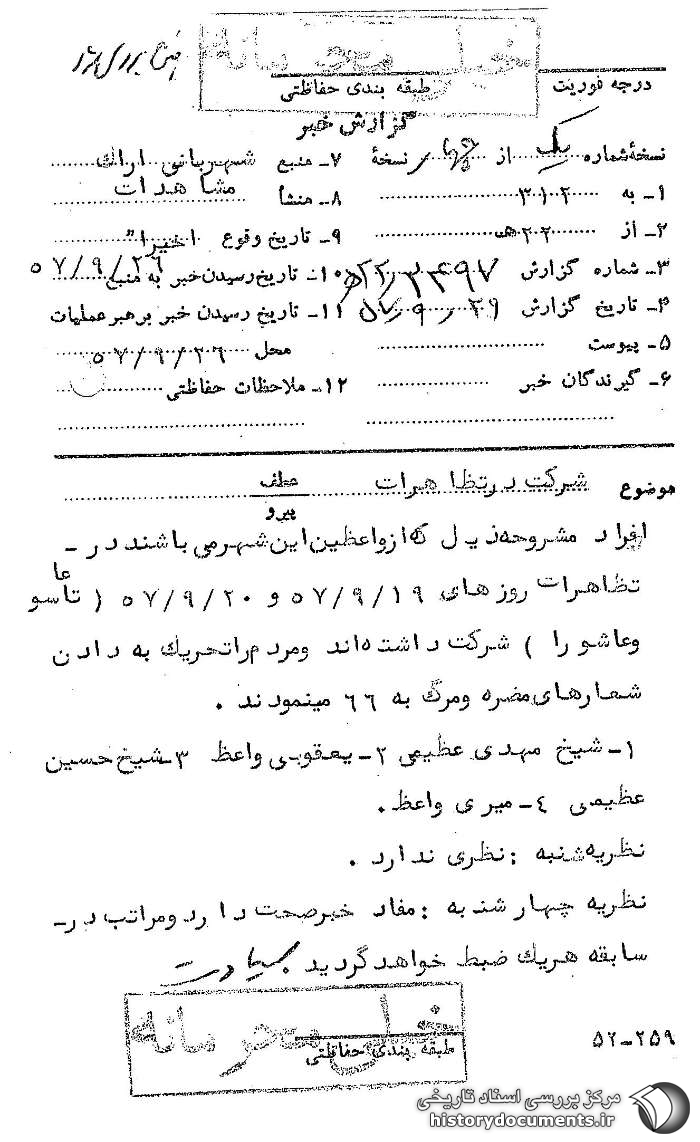 خیلی محرمانه
درجه فوریت طبقه بندی حفاظتی
گزارش خبر
نسخه شماره یک از نسخهٔ ۷ـ منبع شهربانی اراک
۱ـ به ۳۱۲ ۸ـ منشأ مشاهدات
۲ـ از ۲۲ هـ ۹ـ تاریخ وقوع اخیرا"
۳ـ شماره گزارش ۱۰ـ تاریخ رسیدن خبر به منبع ۵۷/۹/۲۶
۴ـ تاریخ گزارش ۵۷٫۹٫۲۹ ۱۱ـ تاریخ رسیدن خبر برهبر عملیات
۵ـ پیوست محل ۵۷/۹/۲۶
۶ـ گیرندگان خبر ۱۲ـ ملاحظات حفاظتی
موضوع شرکت در تظاهرات عطف
پیرو
افراد مشروحه ذیل که از واعظین این شهر می باشند در ـ
تظاهرات روزهای ۵۷/۹/۱۹ و ۵۷/۹/۲۰ ( تاسوعا
وعاشورا ) شرکت داشته اند ومردم را تحریک به دادن
شعارهای مضره ومرگ به ۶۶ مینمودند .
۱ـ شیخ مهدی عظیمی ۲ـ یعقوبی واعظ ۳ـ شیخ حسین
عظیمی ۴ـ میری واعظ .
نظریه شنبه : نظری ندارد .
نظریه چهارشنبه : مفاد خبر صحت دارد ومراتب در ـ
سابقه هریک ضبط خواهد گردید
خیلی محرمانه
طبقه بندی حفاظتی
۵۲ـ۲۵۹
مرکز بررسی اسناد تاریخی
historydocuments.ir